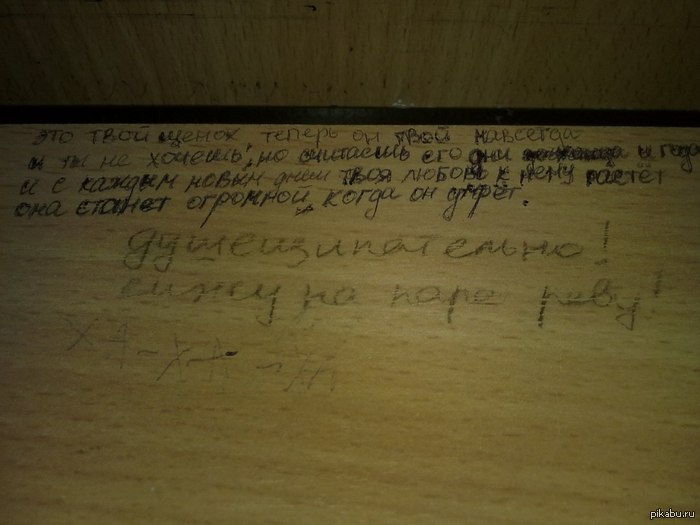 это твой щенок теперь он твой навсегда
и ты не хочешь, но считаешь его дни и года
и с каждым новым днем твоя любовь к нему растёт
она станет огромной, когда он умрёт.
душещипательно!
сижу на паре реву.
ХА-ХА
pikabu.ru